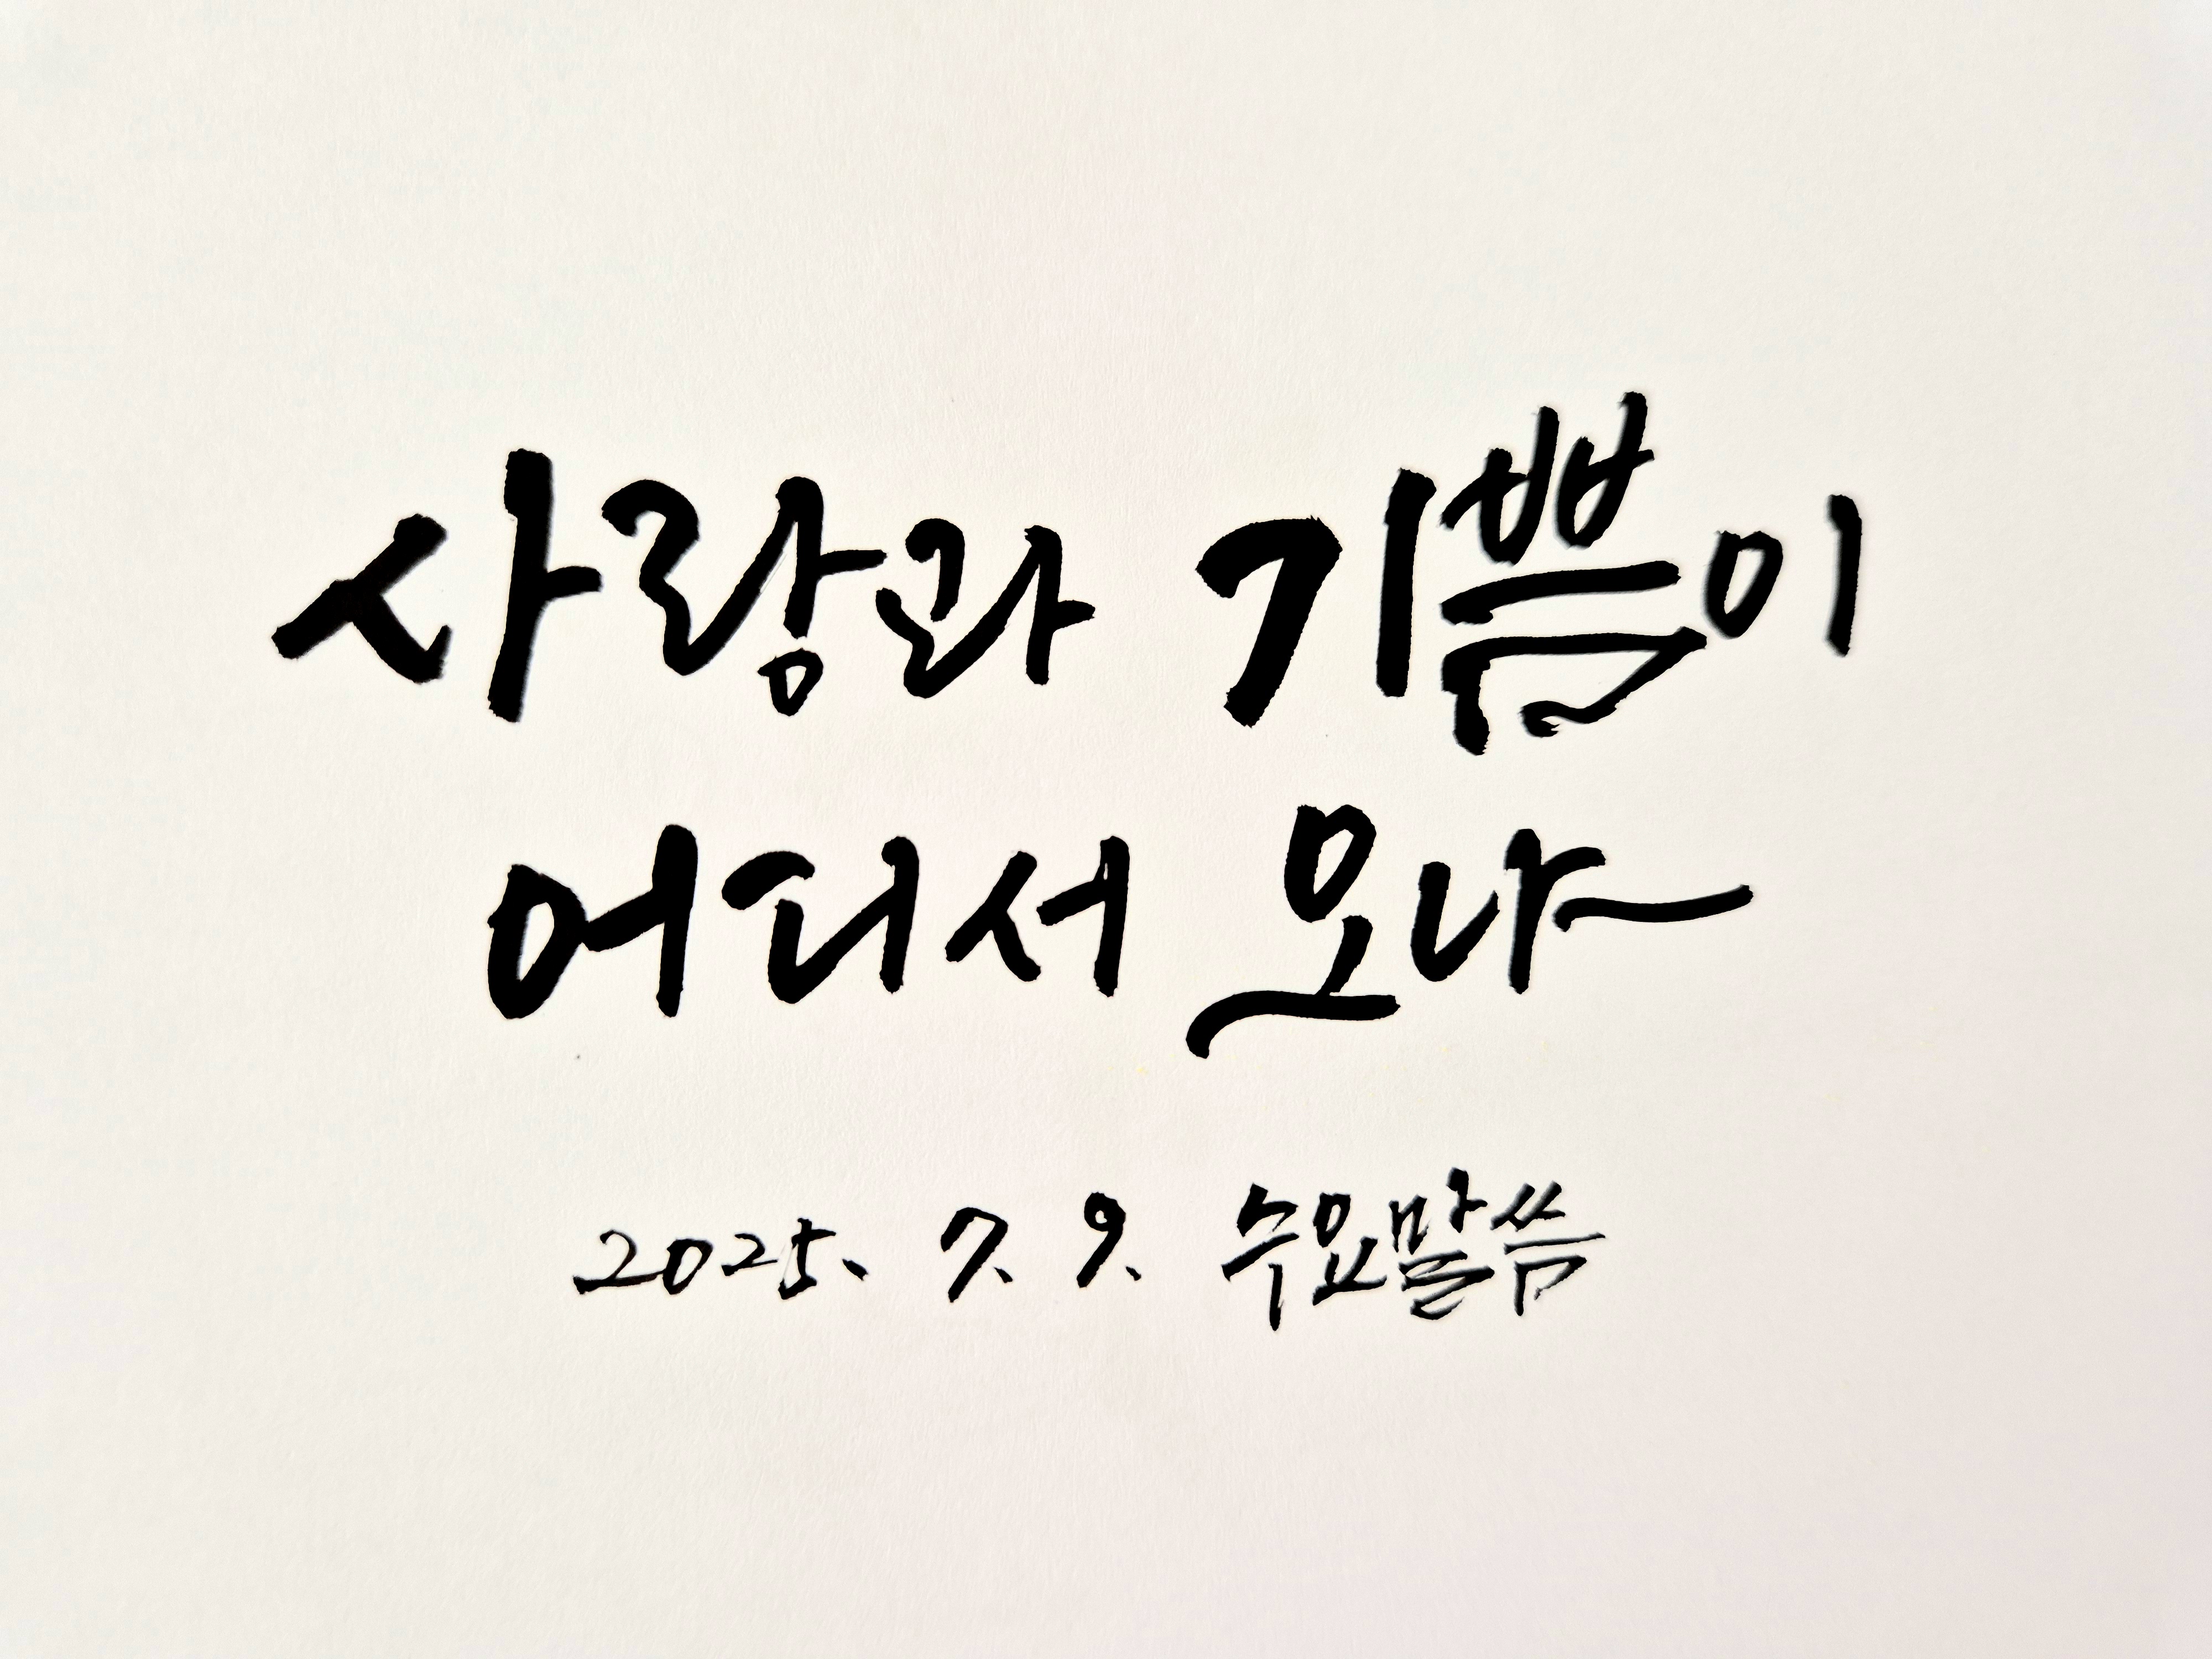 사랑과 기쁨이
어디서 오나
2025. 7. 9. 수요말씀